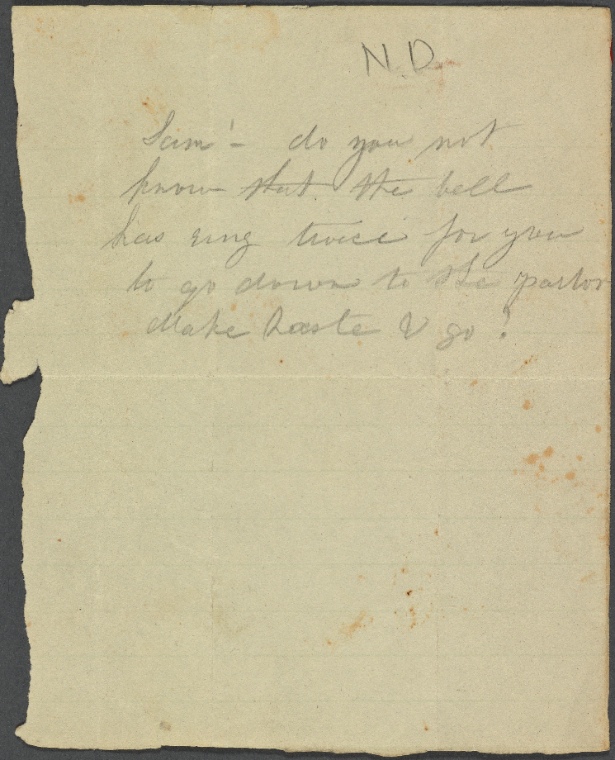 N.D.
Sam'- do you not
know that the bell
has rung twice for you
to go down to the parlor
Make haste & go?